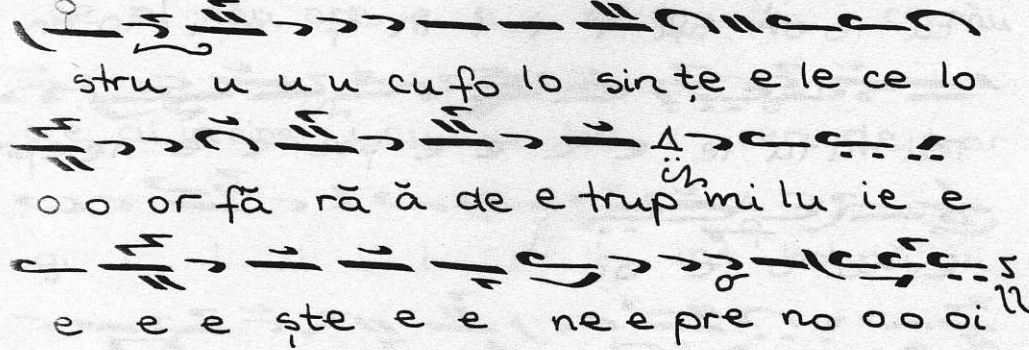 stru u u u cu fo lo sin țe e le ce lo
o o or fă ră ă de e trup mi lu ie e
e e e ște e e ne e pre no o o oi